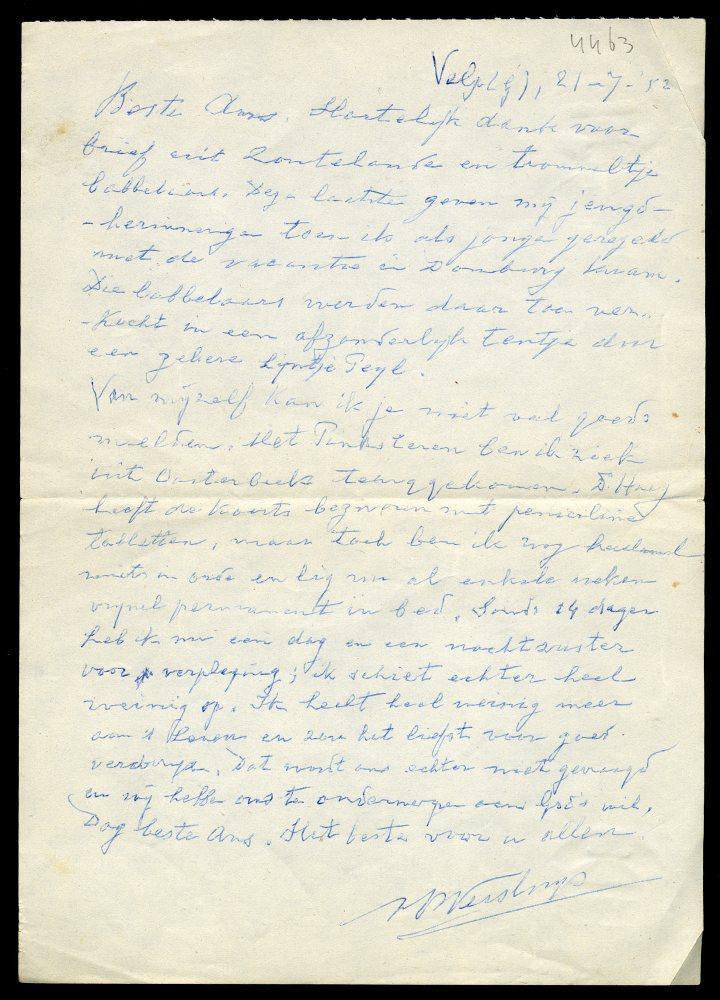 4463
Velp (G), 21-7-'52
Beste Ans. Hartelijk dank voor
brief uit Zoutelande en trommeltje
babbelaars. Deze laatste geven mij jeugd-
-herinneringen toen ik als jongen geregeld
met de vacantie in Domburg kwam.
Die babbelaars werden daar toen ver-
-kocht in een afzonderlijk tentje door
een zekere Lijntje Peyl.
Van mijzelf kan ik je niet veel goeds
melden. Met Pinksteren ben ik ziek
uit Oosterbeek teruggekomen. D.
heeft de koorts bezworen met penicilline
tabletten, maar toch ben ik nog heelemaal
niets in orde en lig nu al enkele weken
vrijwel permanent in bed. Sinds 14 dagen
heb ik nu een dag en een nachtzuster
voor verpleging; ik schiet echter heel
weinig op. Ik hecht heel weinig meer
aan 't leven en zou het liefst voor goed
verdwijnen. Dat wordt ons echter niet gevraagd
en wij hebben ons te onderwerpen aan God's wil.
Dag beste Ans. Het beste voor u allen.
Versluys